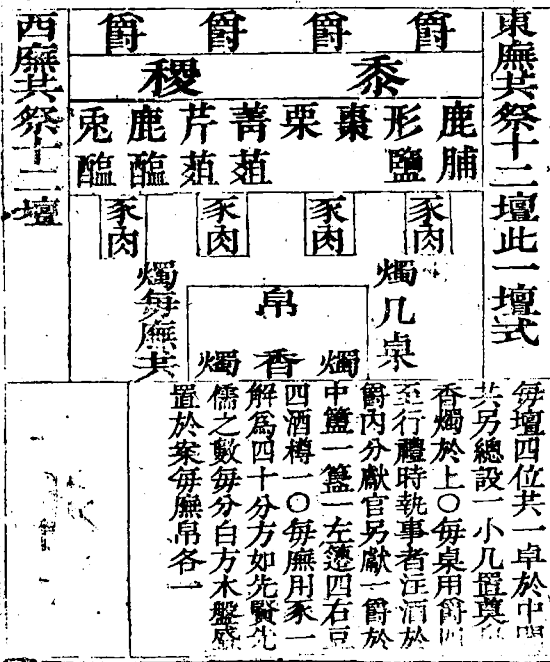 東廡共祭十二壇此一壇式
爵 爵 爵 爵
黍 稷
鹿脯 形鹽 棗 栗 菁葅 芹葅 鹿醢 兎醢
豕肉 豕肉 豕肉 豕肉
燭几桌
帛
燭 香 燭
燭每廡共
西廡共祭十二壇
每壇四位共一卓於中
共另總設一小几置奠
香燭於上〇每桌用爵四
至行禮時執事者注酒於
爵內分獻官另獻一爵於
中簠一簋一左籩四右豆
四酒樽一〇每廡用豕一
解爲四十分方如先賢先
儒之數每分白方木盤盛
置於案每廡帛各一